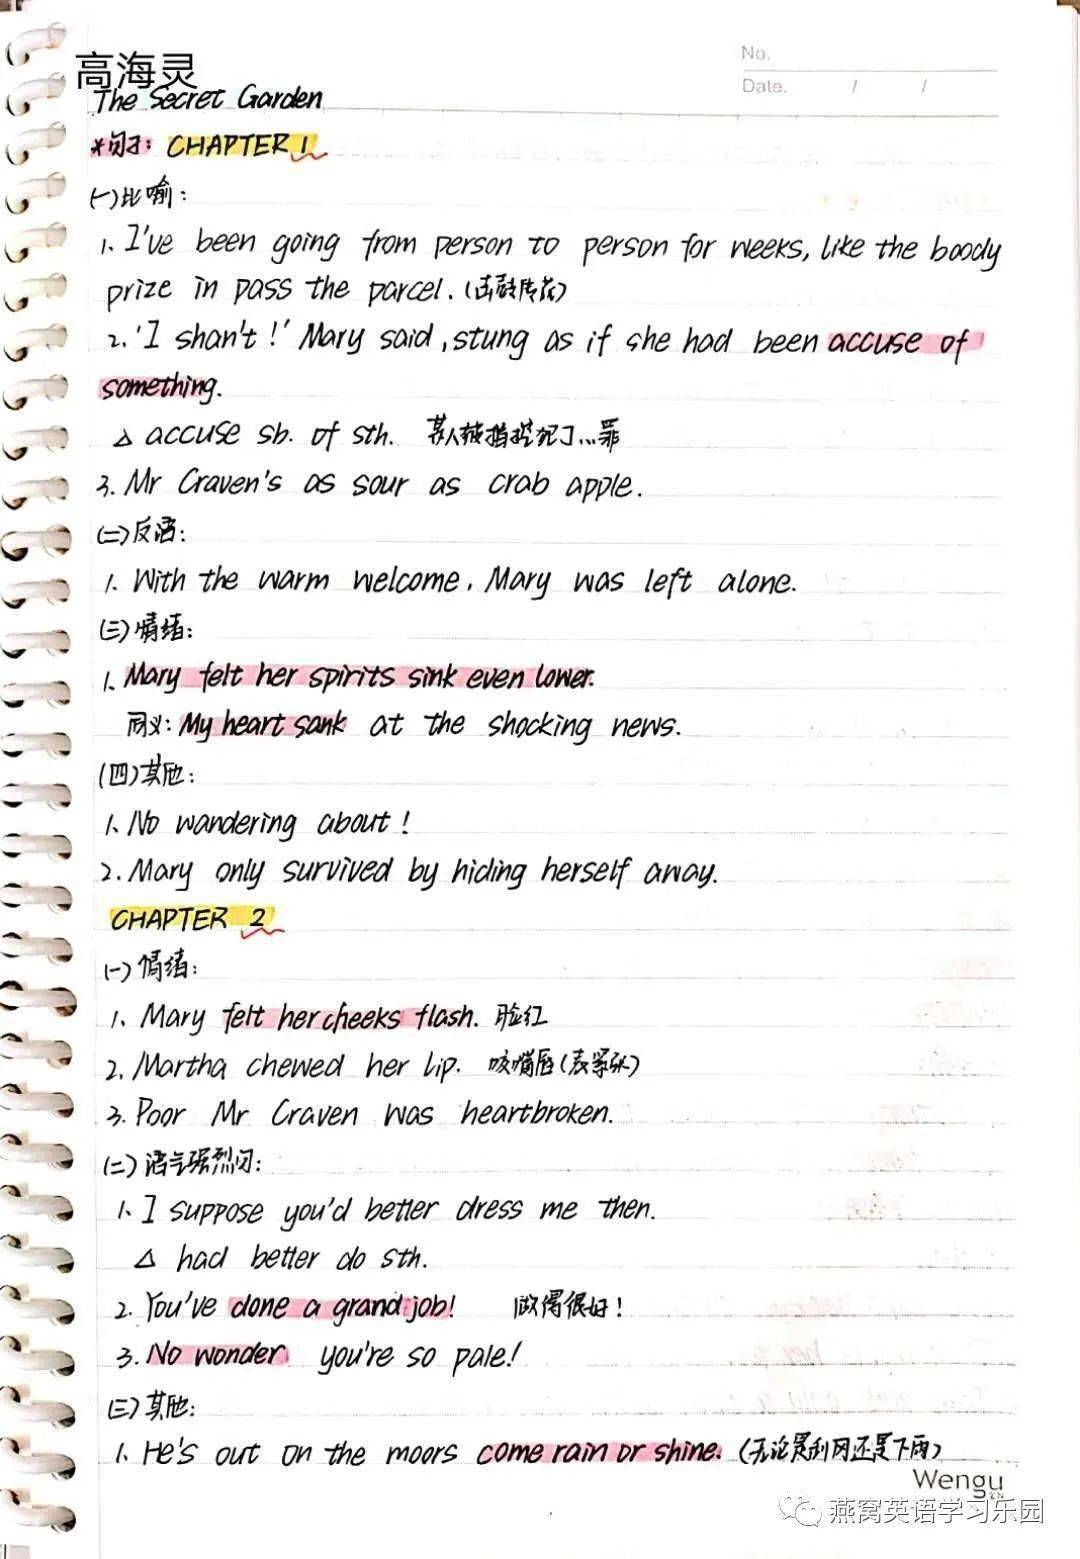 高海灵
No.
Date. / /
The Secret Garden
*句子: CHAPTER 1
(一)比喻:
1. I've been going from person to person for weeks, like the boody
prize in pass the parcel. (击鼓传花)
2. 'I shan't!' Mary said, stung as if she had been accuse of
something.
△ accuse sb. of sth. 某人被指控犯了...罪
3. Mr Craven's as sour as crab apple.
(二)反语:
1. With the warm welcome, Mary was left alone.
(三)情绪:
1. Mary felt her spirits sink even lower.
同义: My heart sank at the shocking news.
(四)其他:
1. No wandering about!
2. Mary only survived by hiding herself away.
CHAPTER 2
(一)情绪:
1. Mary felt her cheeks flash. 脸红
2. Martha chewed her lip. 咬嘴唇(表紧张)
3. Poor Mr Craven was heartbroken.
(二)语气强烈句:
1. I suppose you'd better dress me then.
△ had better do sth.
2. You've done a grand job! 做得很好!
3. No wonder you're so pale!
(三)其他:
1. He's out on the moors come rain or shine. (无论是刮风还是下雨)
Wengu
燕窝英语学习乐园